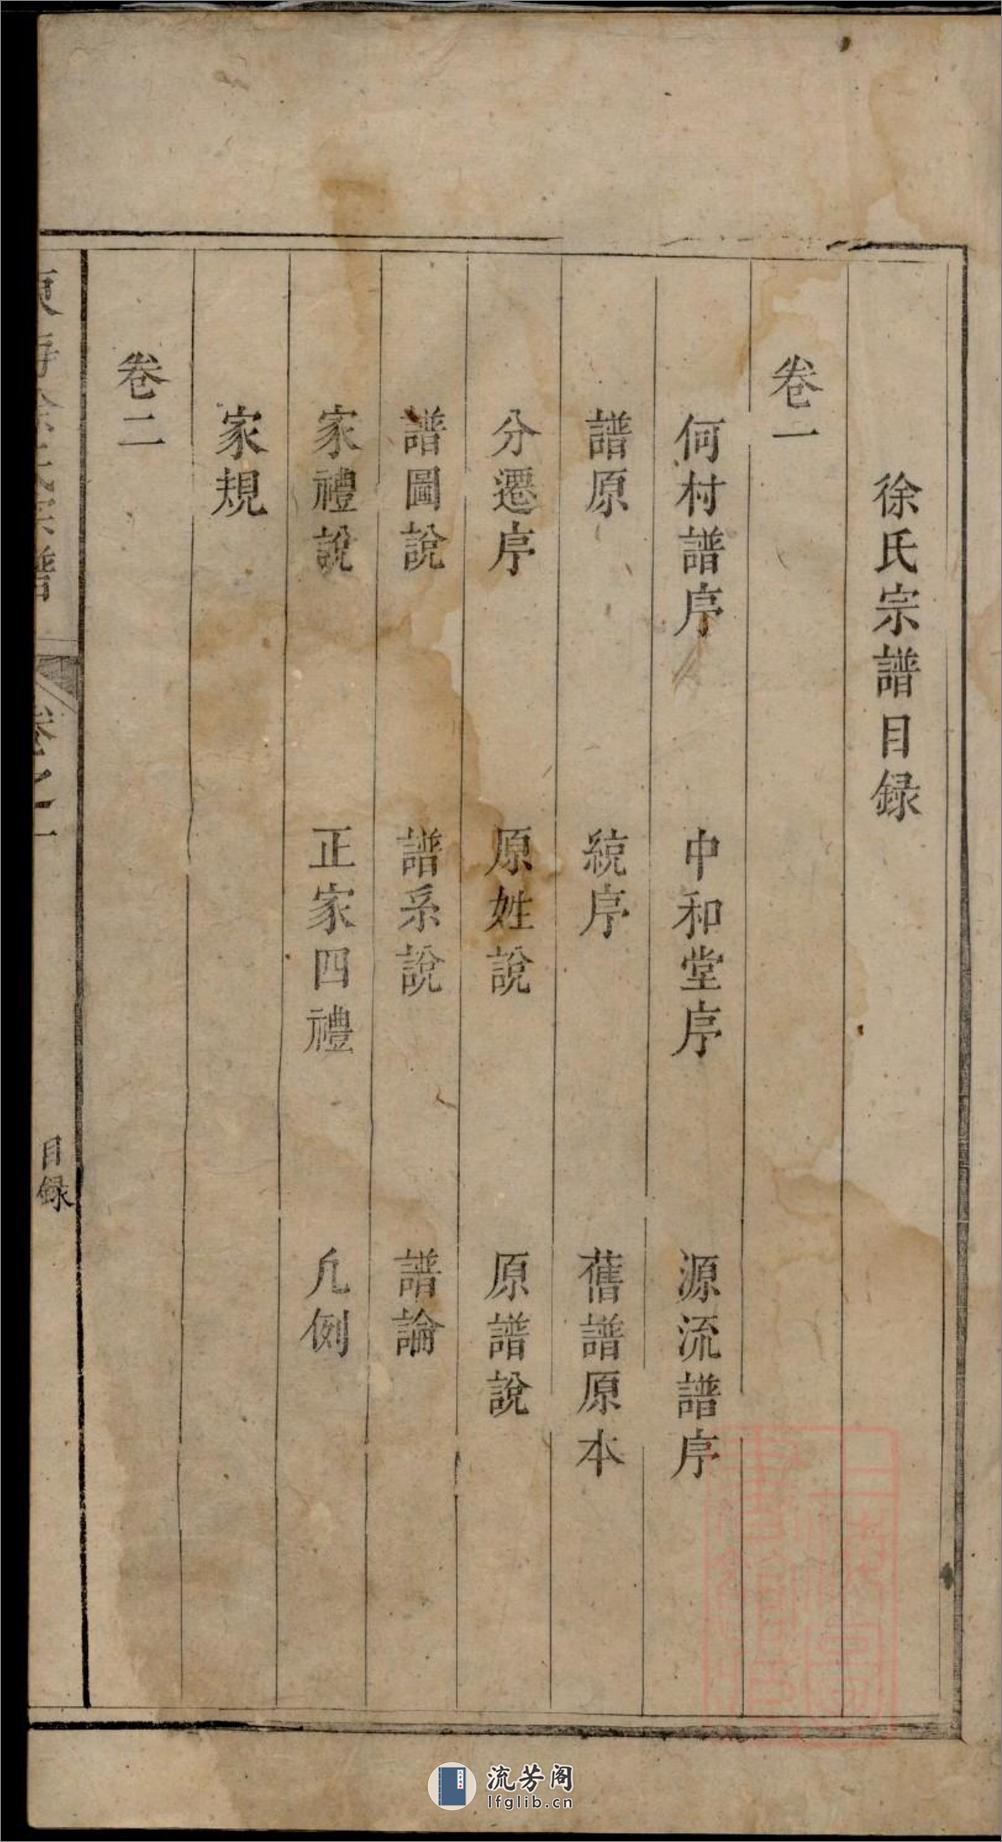 徐氏宗譜目録
卷一
何村譜序 中和堂序 源流譜序
譜原 統序 舊譜原本
分遷序 原姓說 原譜說
譜圖說 譜系說 譜論
家禮說 正家四禮 凡例
家規
卷二
東海徐氏宗譜 卷之一 目録
流芳阁
lfglib.cn